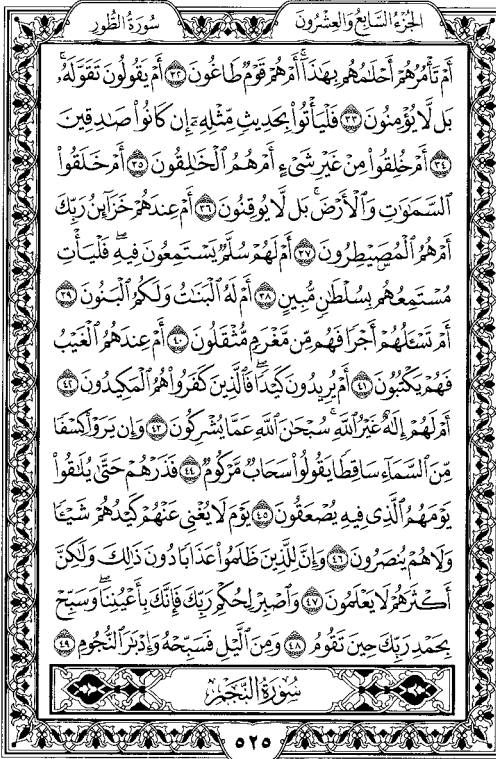 سُورَةُ الطُّورِ
الجُزءُ السَّابِعُ وَالعِشْرُونَ
أَمْ تَأْمُرُهُمْ أَحْلَٰمُهُم بِهَٰذَآ ۚ أَمْ هُمْ قَوْمٌ طَاغُونَ ٣٢ أَمْ يَقُولُونَ تَقَوَّلَهُۥ ۚ
بَل لَّا يُؤْمِنُونَ ٣٣ فَلْيَأْتُوا۟ بِحَدِيثٍ مِّثْلِهِۦٓ إِن كَانُوا۟ صَٰدِقِينَ
٣٤ أَمْ خُلِقُوا۟ مِنْ غَيْرِ شَىْءٍ أَمْ هُمُ ٱلْخَٰلِقُونَ ٣٥ أَمْ خَلَقُوا۟
ٱلسَّمَٰوَٰتِ وَٱلْأَرْضَ ۚ بَل لَّا يُوقِنُونَ ٣٦ أَمْ عِندَهُمْ خَزَآئِنُ رَبِّكَ
أَمْ هُمُ ٱلْمُصَۣيْطِرُونَ ٣٧ أَمْ لَهُمْ سُلَّمٌ يَسْتَمِعُونَ فِيهِ ۖ فَلْيَأْتِ
مُسْتَمِعُهُم بِسُلْطَٰنٍ مُّبِينٍ ٣٨ أَمْ لَهُ ٱلْبَنَٰتُ وَلَكُمُ ٱلْبَنُونَ ٣٩
أَمْ تَسْـَٔلُهُمْ أَجْرًا فَهُم مِّن مَّغْرَمٍ مُّثْقَلُونَ ٤٠ أَمْ عِندَهُمُ ٱلْغَيْبُ
فَهُمْ يَكْتُبُونَ ٤١ أَمْ يُرِيدُونَ كَيْدًا ۖ فَٱلَّذِينَ كَفَرُوا۟ هُمُ ٱلْمَكِيدُونَ ٤٢
أَمْ لَهُمْ إِلَٰهٌ غَيْرُ ٱللَّهِ ۚ سُبْحَٰنَ ٱللَّهِ عَمَّا يُشْرِكُونَ ٤٣ وَإِن يَرَوْا۟ كِسْفًا
مِّنَ ٱلسَّمَآءِ سَاقِطًا يَقُولُوا۟ سَحَابٌ مَّرْكُومٌ ٤٤ فَذَرْهُمْ حَتَّىٰ يُلَٰقُوا۟
يَوْمَهُمُ ٱلَّذِى فِيهِ يُصْعَقُونَ ٤٥ يَوْمَ لَا يُغْنِى عَنْهُمْ كَيْدُهُمْ شَيْـًٔا
وَلَا هُمْ يُنصَرُونَ ٤٦ وَإِنَّ لِلَّذِينَ ظَلَمُوا۟ عَذَابًا دُونَ ذَٰلِكَ وَلَٰكِنَّ
أَكْثَرَهُمْ لَا يَعْلَمُونَ ٤٧ وَٱصْبِرْ لِحُكْمِ رَبِّكَ فَإِنَّكَ بِأَعْيُنِنَا ۖ وَسَبِّحْ
بِحَمْدِ رَبِّكَ حِينَ تَقُومُ ٤٨ وَمِنَ ٱلَّيْلِ فَسَبِّحْهُ وَإِدْبَٰرَ ٱلنُّجُومِ ٤٩
سُورَةُ النَّجْمِ
٥٢٥